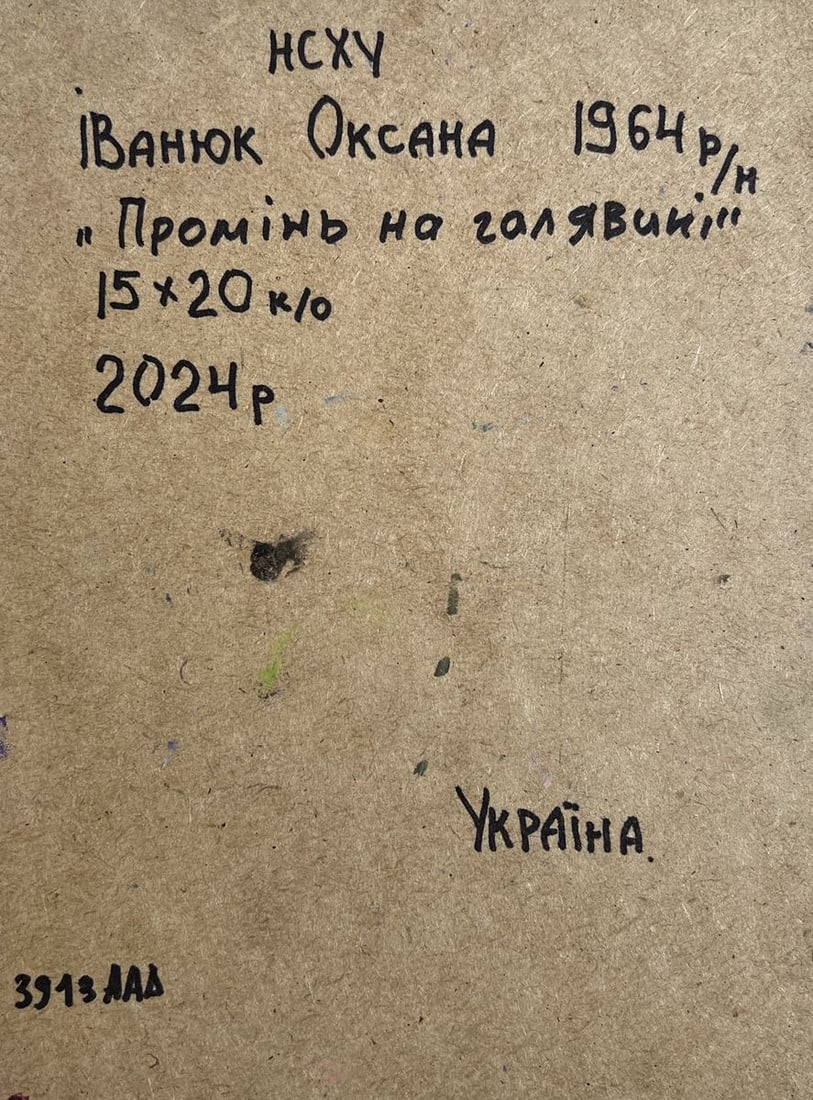 НСХУ
Іванюк Оксана 1964 р/н
„Промінь на галявині"
15×20 к/о
2024р
Україна.
3913 ААД